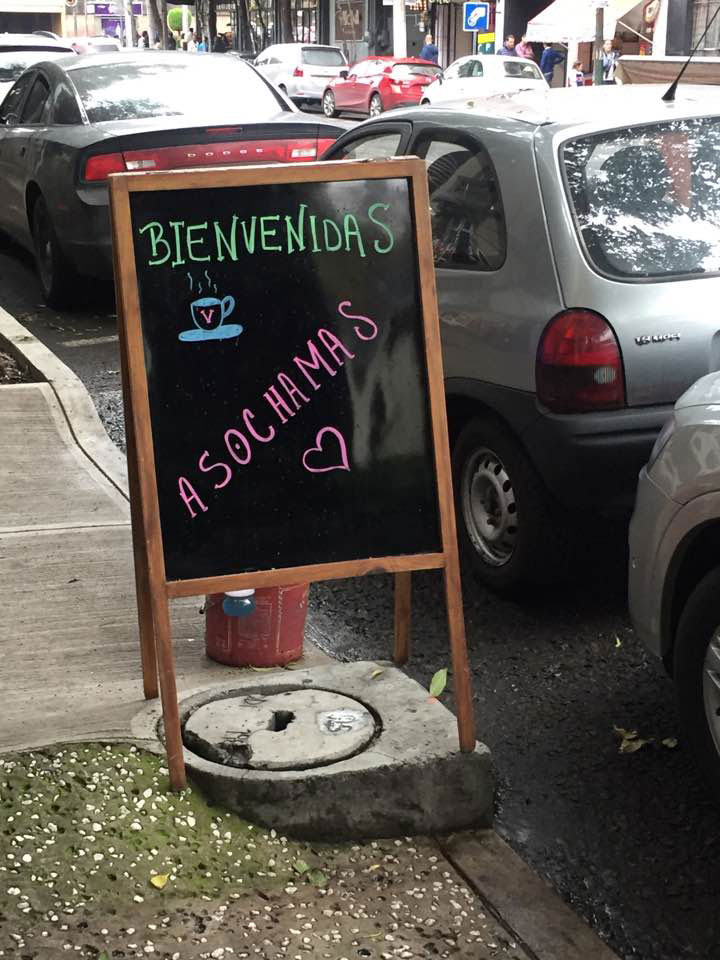 DODGE
BIENVENIDAS
V
ASOCHAMAS